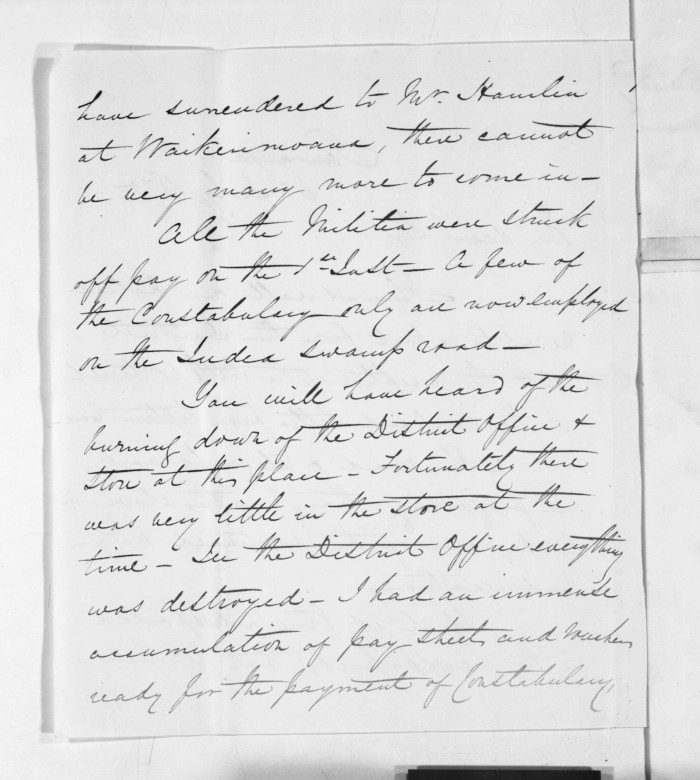 have surrendered to Mr. Hamlin
at Waikerimoana, there cannot
be very many more to come in –
All the Militia were struck
off pay on the 1st Inst – A few of
the Constabulary only are now employed
on the swamp road –
You will have heard of the
burning down of the District Office &
Store at this place – Fortunately there
was very little in the store at the
time – In the District Office everything
was destroyed – I had an immense
accumulation of pay sheets and vouchers
ready for the payment of Constabulary,